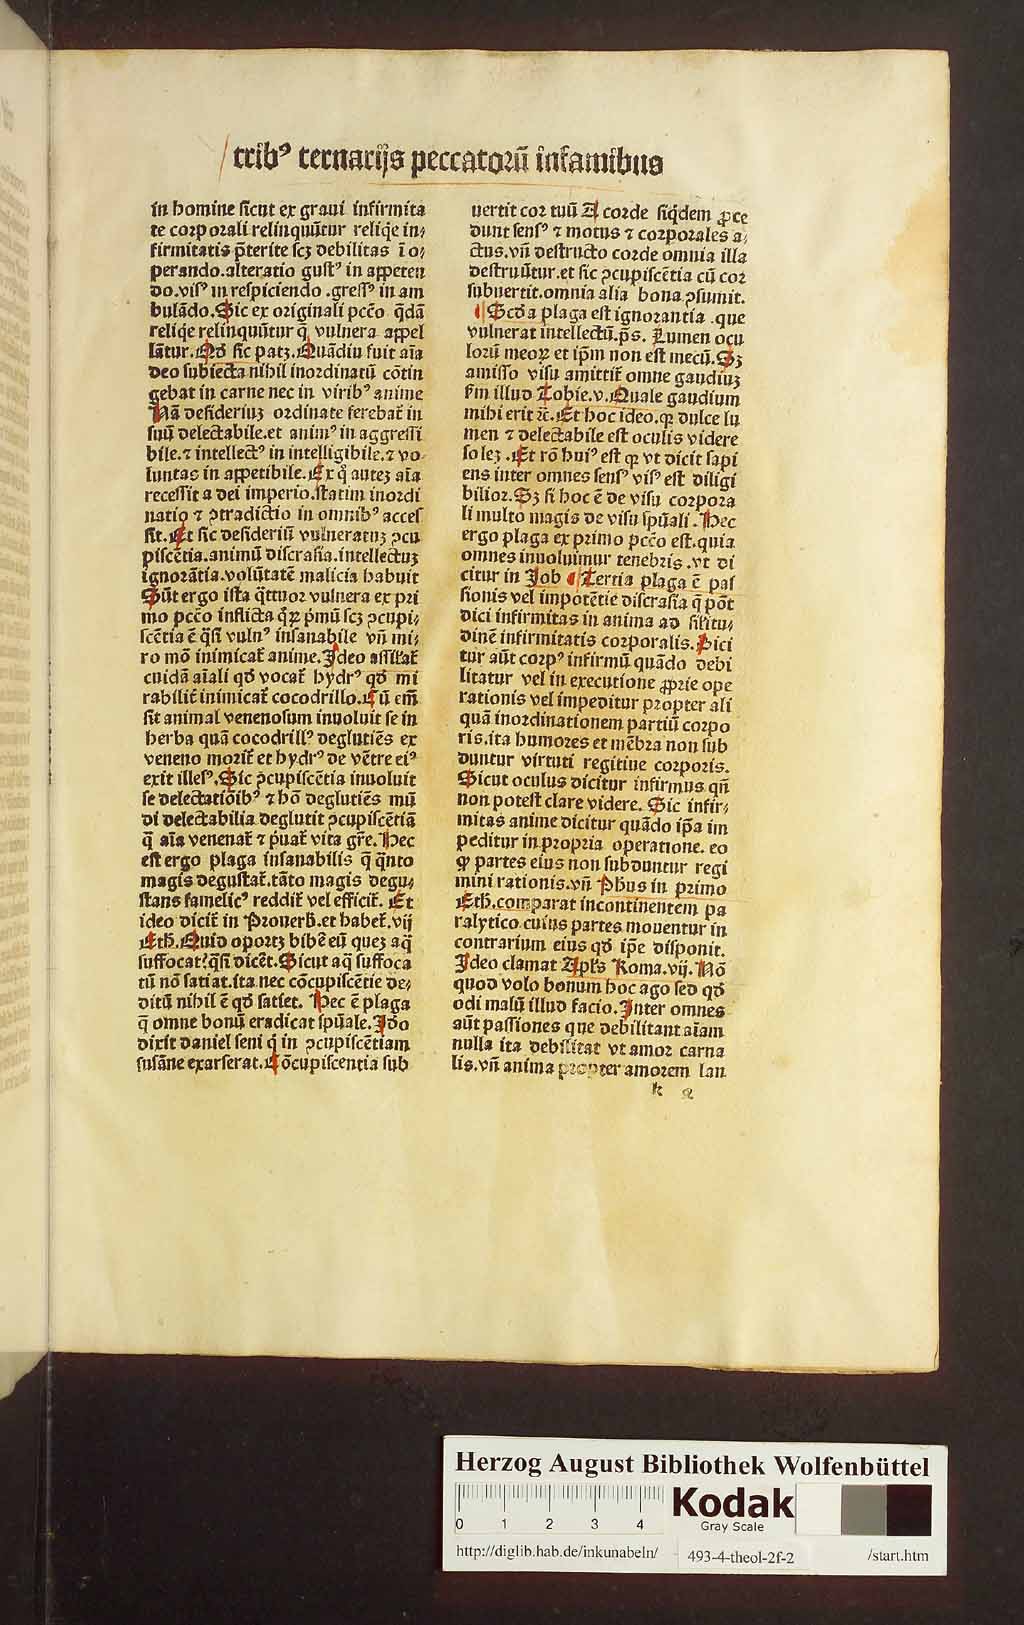 tribꝰ ternarijs peccatorū infamibus
in homine sicut ex graui infirmita
te corporali relinquūtur reliqͥe in⸗
firmitatis p̄terite scꝫ debilitas ī o⸗
perando.alteratio gustꝰ in appeten
do.visꝰ in respiciendo .gressꝰ in am
bulādo.Sic ex originali pcc̄o q̄dā
reliqͥe relinquūtur q̄ vulnera appel
lātur.Qd̄ sic patꝫ.Quādiu fuit aīa
deo subiecta nihil inordinatū cōtin
gebat in carne nec in viribꝰ anime
Nā desideriuꝫ ordinate ferebat̄ in
suū delectabile.et animꝰ in aggressi
bile.⁊ intellectꝰ in intelligibile.⁊ vo⸗
luntas in appetibile.Ex qͦ auteꝫ aīa
recessit a dei imperio.statim inordi
natio ⁊ ꝯtradictio in omnibꝰ acces
sit.Et sic desideriū vulneratuꝫ ꝯcu
piscētia.animū discrasia.intellectuꝫ
ignorātia.volūtatē malicia habuit
Sūt ergo ista qͣttuor vulnera ex pri
mo pcc̄o inflicta qͣꝝ pͥmū scꝫ ꝯcupi⸗
scētia ē qͣsi vulnꝰ insanabile vn̄ mi⸗
ro mō inimicat̄ anime.Ideo assil̓at̄
cuidā aīali qd̄ vocat̄ hydrꝰ qd̄ mi
rabilit̄ inimicat̄ cocodrillo.Cū em̄
sit animal venenosum inuoluit se in
herba quā cocodrillꝰ deglutiēs ex
veneno morit̄ et hydrꝰ de vētre eiꝰ
exit illesꝰ.Sic ꝯcupiscētia inuoluit
se delectatiōibꝰ ⁊ hō deglutiēs mū
di delectabilia deglutit ꝯcupiscētiā
q̄ aīa venenat̄ ⁊ pͥuat̄ vita gr̄e.Hec
est ergo plaga insanabilis q̄ qͣnto
magis degustat̄.tāto magis degu⸗
stans famelicꝰ reddit̄ vel efficit̄. Et
ideo dicit̄ in Prouerb̄.et habet̄.vij
Eth̄.Quid oportꝫ bibē eū queꝫ aqͣ
suffocat?qͣsi dicēt.Sicut aqͣ suffoca
tū nō satiat.ita nec cōcupiscētie de⸗
ditū nihil ē qd̄ satiet. Hec ē plaga
q̄ omne bonū eradicat spūale.Idō
dixit daniel seni qͥ in ꝯcupiscētiam
susāne exarserat.Cōcupiscentia sub
uertit cor tuū A corde siqͥdem ꝓce
dunt sensꝰ ⁊ motus ⁊ corporales a⸗
ctus.vn̄ destructo corde omnia illa
destruūtur.et sic ꝯcupiscētia cū cor
subuertit.omnia alia bona ꝯsumit.
Scd̄a plaga est ignorantia .que
vulnerat intellectū.ps̄. Lumen ocu
lorū meoꝝ et ip̄m non est mecū.Sꝫ
amisso visu amittit̄ omne gaudiuꝫ
ẜm illud Tobie.v.Quale gaudium
mihi erit ⁊c̄.Et hoc ideo.qꝛ dulce lu
men ⁊ delectabile est oculis videre
soleꝫ .Et rō huiꝰ est qꝛ vt dicit sapi
ens inter omnes sensꝰ visꝰ est diligi
bilior.Sꝫ si hoc ē de visu corpora
li multo magis de visu spūali .Hec
ergo plaga ex primo pcc̄o est.quia
omnes inuoluimur tenebris .vt di
citur in Job Tertia plaga ē pas
sionis vel impotētie discrasia q̄ pōt
dici infirmitas in anima ad sil̓itu⸗
dinē infirmitatis corporalis.Dici
tur aūt corpꝰ infirmū quādo debi
litatur vel in executione ꝓprie ope
rationis vel impeditur propter ali
quā inordinationem partiū corpo
ris.ita humores et mēbra non sub
duntur virtuti regitiue corporis.
Sicut oculus dicitur infirmus qn̄
non potest clare videre. Sic infir⸗
mitas anime dicitur quādo ip̄a im
peditur in propria operatione. eo
ꝙ partes eius non subduntur regi
mini rationis.vn̄ Ph̄us in primo
Eth̄.comparat incontinentem pa
ralytico cuius partes mouentur in
contrarium eius qd̄ ip̄e disponit.
Ideo clamat Apl̓s Roma.vij. Nō
quod volo bonum hoc ago sed qd̄
odi malū illud facio.Inter omnes
aūt passiones que debilitant aīam
nulla ita debilitat vt amor carna
lis.vn̄ anima propter amorem lan
k 2
Herzog August Bibliothek Wolfenbüttel
0 1 2 3 4
Kodak
Gray Scale
http://diglib.hab.de/inkunabeln/ 493-4-theol-2f-2 /start.htm